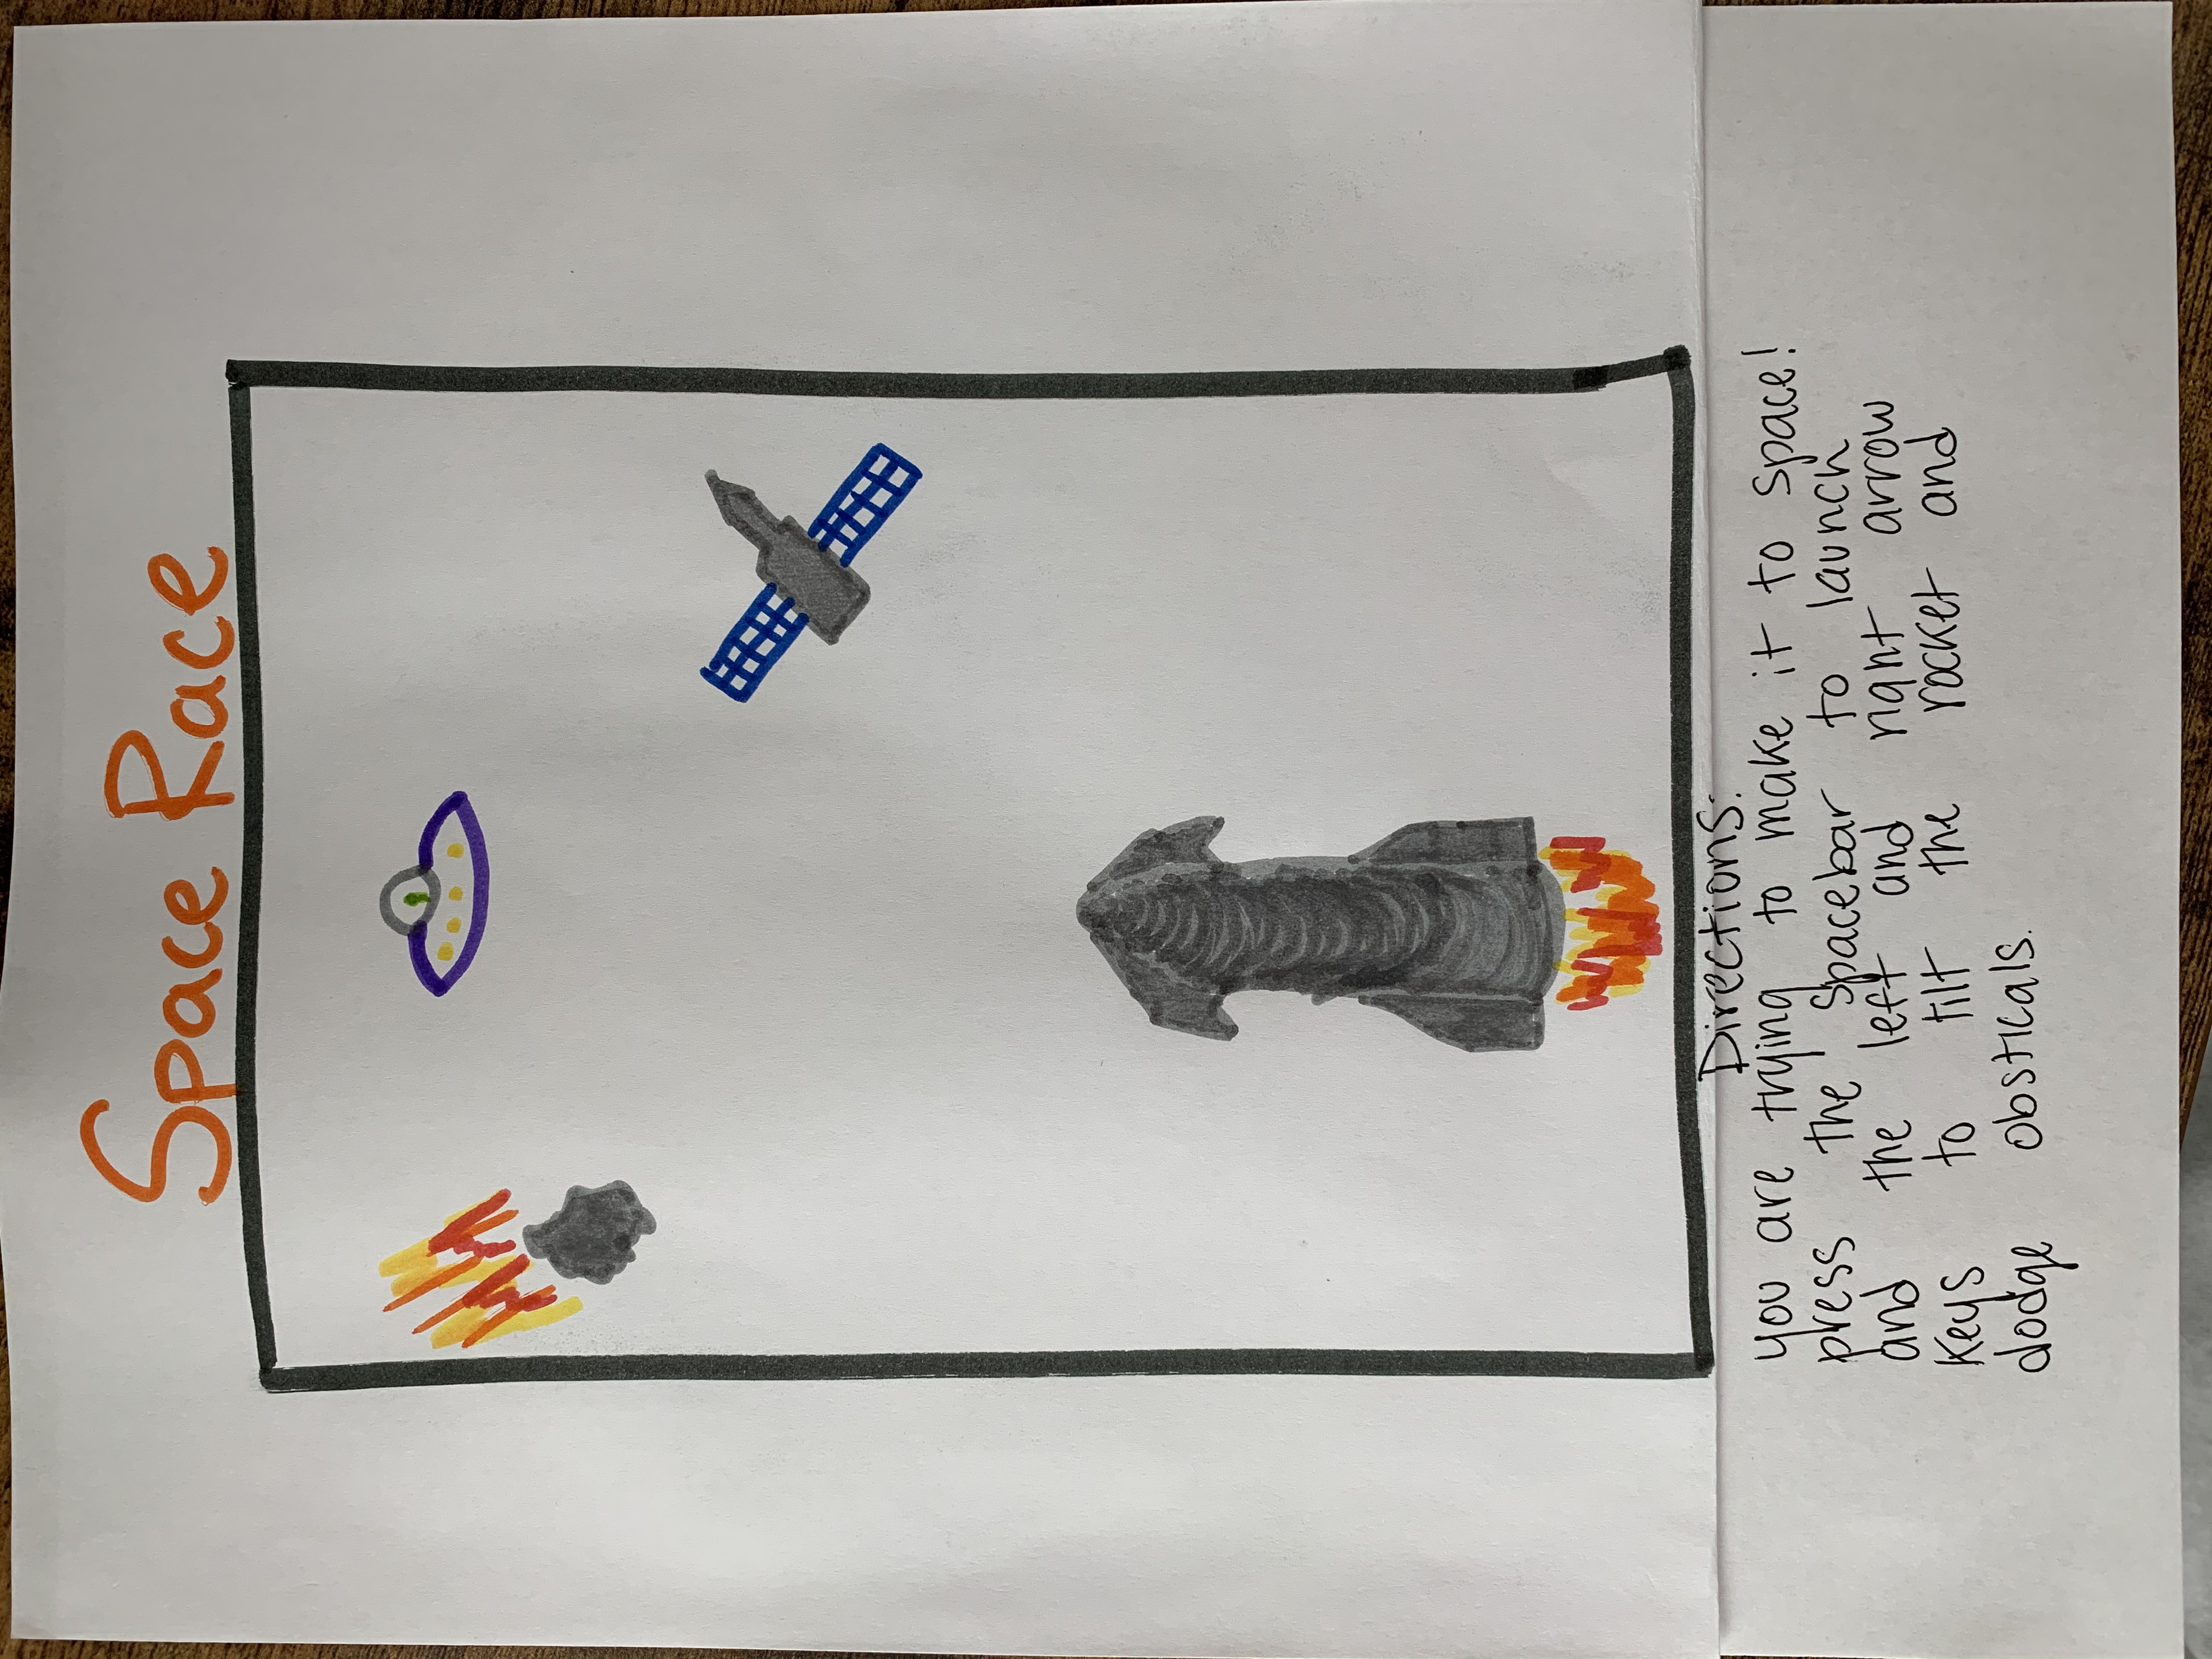 Space Race
Directions:
you are trying to make it to space!
press the spacebar to launch
and the left and right arrow
keys to tilt the rocket and
dodge obsticals.